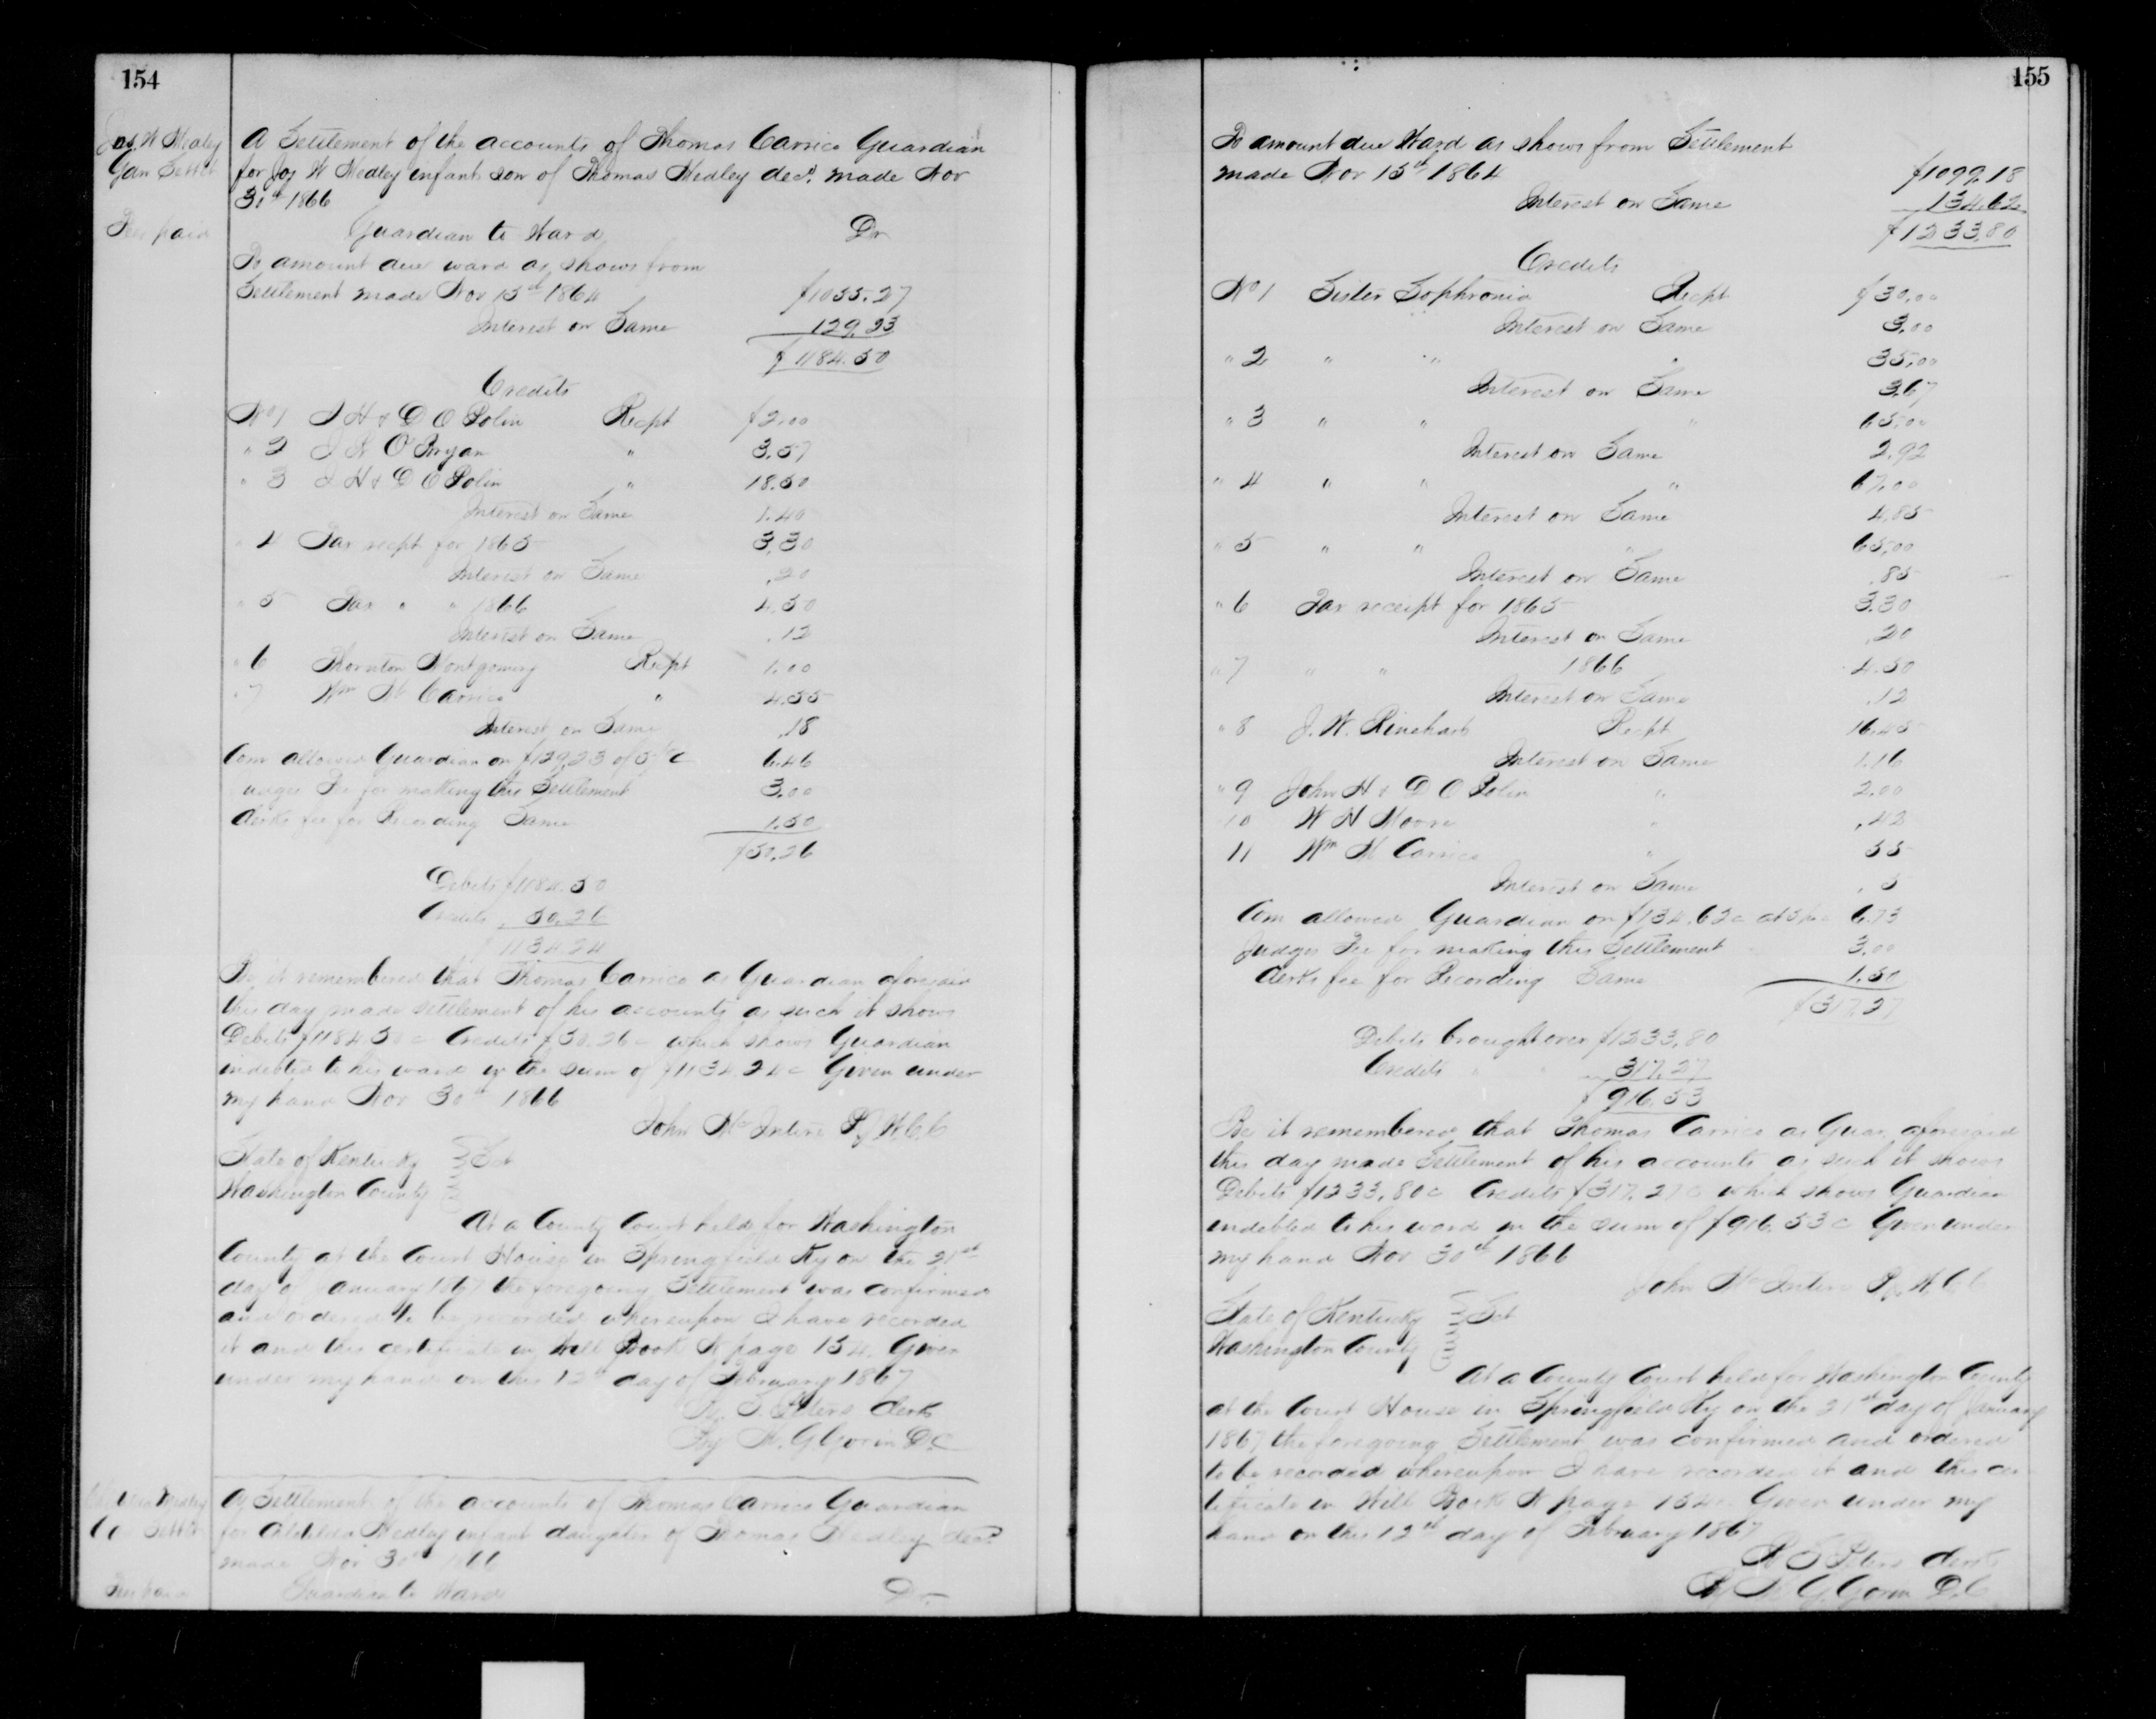 154
Jos. W Medley
Gan Settlt
A Settlement of the accounts of Thomas Carrico Guardian
for Jos W Medley infant son of Thomas Medley decd. made Nov
30th 1866
Fee paid
Guardian to Ward Dr
To amount due ward as shows from
Settlement made Nov 15th 1864 $1055.27
Interest on Same 129.23
$1184.50
Credits
No 1 J H & D O Polin Recpt $2.00
" 2 J N O'Bryan " 3.57
" 3 J H & D O Polin " 18.50
Interest on Same 1.40
" 4 Tax recpt for 1865 3.30
Interest on Same .20
" 5 Tax " " 1866 4.50
Interest on Same .12
" 6 Thornton Montgomery Recpt 1.00
" 7 Wm H Carrico " 4.55
Interest on Same .18
Com allowed Guardian on $129.23 of 5 pr c 6.46
Judges Fee for making this Settlement 3.00
Clerks fee for Recording Same 1.50
$50.26
Debits $1184.50
Credits, 50.26
$1134.24
Be it remembered that Thomas Carrico as Guardian aforesaid
this day made settlement of his accounts as such it shows
Debits $1184.50c Credits $50.26c which shows Guardian
indebted to his ward in the sum of $1134.24c Given under
my hand Nov 30th 1866
John McIntire P J W.C.C
State of Kentucky Sct
Washington County
At a County Court held for Washington
County at the Court House in Springfield Ky on the 21st
day of January 1867 the foregoing Settlement was confirmed
and ordered to be recorded whereupon I have recorded
it and this certificate in Will Book N page 154. Given
under my hand on this 12th day of February 1867
S. Peters Clerk
By G Gorin D.C
Medley
Settlt
A Settlement of the accounts of Thomas Carrico Guardian
for Medley infant daugater of Thomas Medley decd
made Nov 30th 1866
Fee paid
Guardian to Ward Dr.
155
To amount due Ward as shows from Settlement
made Nov 15th 1864 $1099.18
Interest on Same 134.62
$1233.80
Credits
No 1 Sister Sophronia Recpt $30.00
Interest on Same 3.00
" 2 " " " 35.00
Interest on Same 3.67
" 3 " " " 65.00
Interest on Same 2.92
" 4 " " " 67.00
Interest on Same 4.85
" 5 " " " 65.00
Interest on Same .85
" 6 Tax receipt for 1865 3.30
Interest on Same .20
" 7 " " 1866 4.50
Interest on Same .12
" 8 J. W. Rinehart Recpt 16.45
Interest on Same 1.16
" 9 John H & D O Polin " 2.00
10 W H Moore " .42
11 Wm H Carrico " 55
Interest on Same . 5
Com allowed Guardian on $134.62c at 5 pr c 6.73
Judges Fee for making this Settlement 3.00
Clerks fee for Recording Same 1.50
$317.27
Debits brought over $1233.80
Credits " " 317.27
$916.53
Be it remembered that Thomas Carrico as Guar. aforesaid
this day made Settlement of his accounts as such it shows
Debits $1233.80c Credits $317.27c which shows Guardian
indebted to his ward in the sum of $916.53c Given under
my hand Nov 30th 1866
John McIntire P J W C C
State of Kentucky Sct
Washington County
At a County Court held for Washington County
at the Court House in Springfield Ky on the 21st day of January
1867 the foregoing Settlement was confirmed and ordered
to be recorded whereupon I have recorded it and this cer
tificate in Will Book N page 154. Given under my
hand on this 12th day of February 1867
S Peters Clerk
By G. Gorin D.C